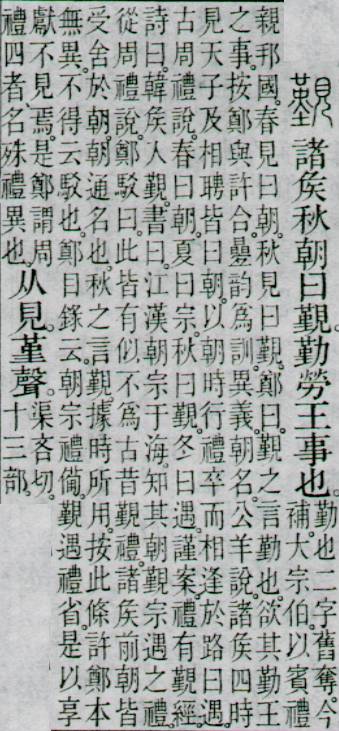 覲 諸矦秋朝曰覲。勤勞王事也。
勤也二字舊奪。今
補。大宗伯。以賓禮
親邦國。春見曰朝。秋見曰覲。鄭曰。覲之言勤也。欲其勤王
之事。按鄭與許合。曡韵為訓。異義。朝名。公羊說。諸矦四時
見天子及相聘皆曰朝。以朝時行禮。卒而相逢於路曰遇。
古周禮說。春曰朝。夏曰宗。秋曰覲。冬曰遇。謹案。禮有覲經。
詩曰。韓矦入覲。書曰。江漢朝宗于海。知其朝覲宗遇之禮。
從周禮說。鄭駁曰。此皆有似不為古昔覲禮。諸矦前朝皆
受舍於朝。朝通名也。秋之言覲。據時所用。按此條許鄭本
無異。不得云駁也。鄭目錄云。朝宗禮僃。覲遇禮省。是以享
獻不見焉。是鄭謂周
禮四者、名殊禮異也。
从見。堇聲。
渠吝切。
十三部。